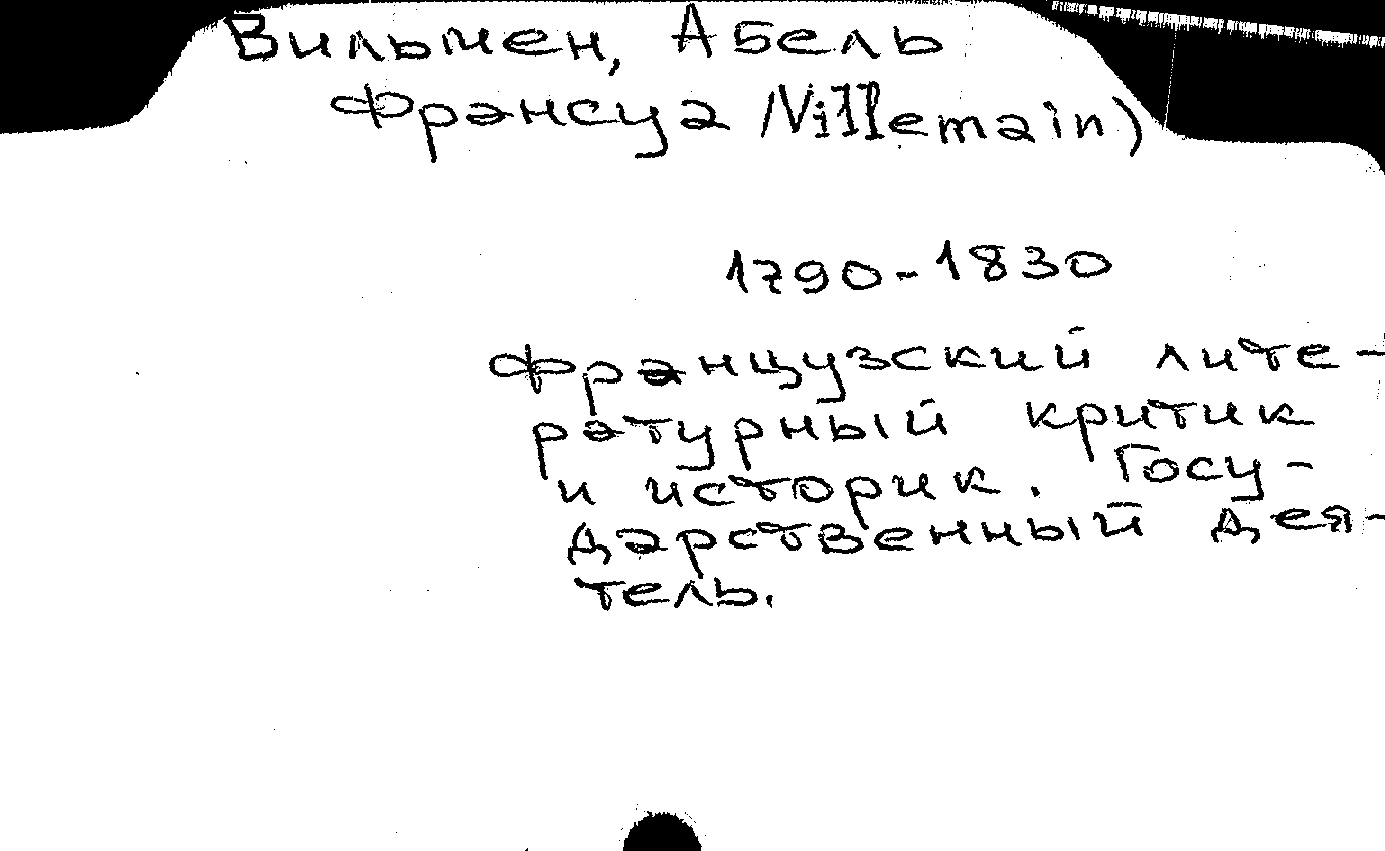 Вильмен, Абель
Франсуа /Villemain)
1790-1830
Французский лите-
ратурный критик
и историк. Госу-
дарственный дея-
тель.